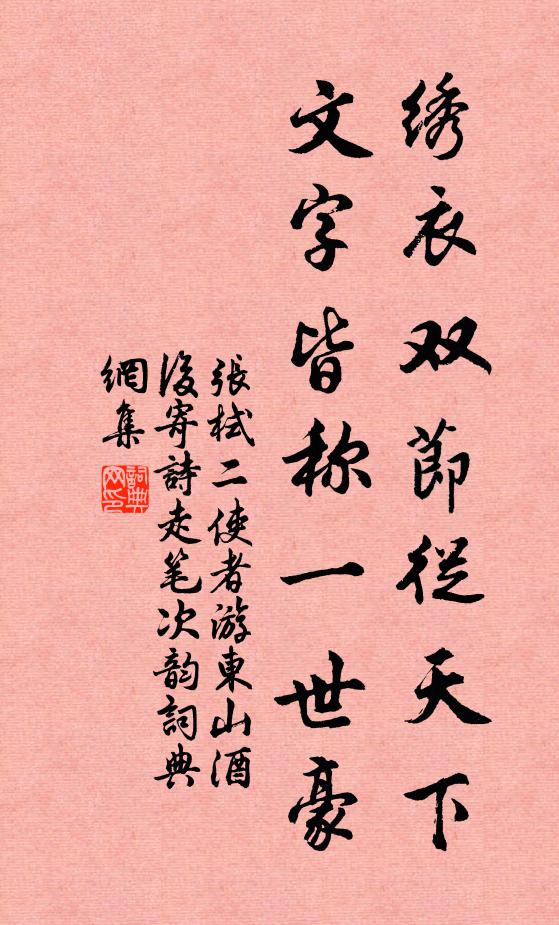 绣衣双节從天下
文字皆称一世豪
張栻二使者游東山酒
後寄詩走笔次韵詞典
網集
詞典
网印